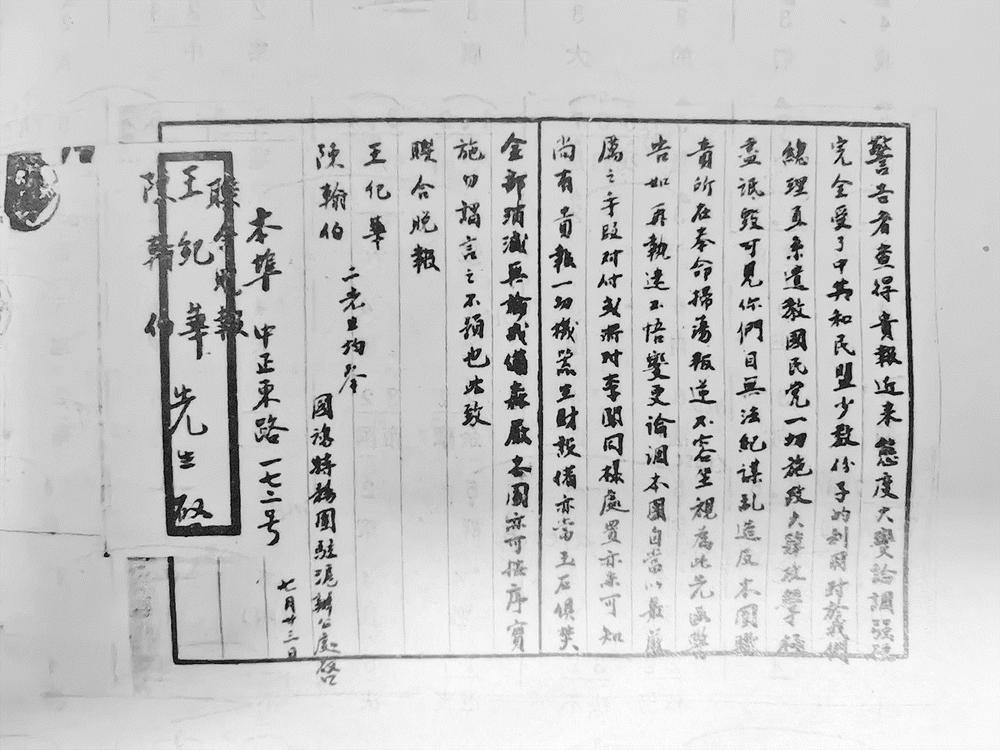 警告者查得貴報近来態度大變論調強硬
完全受了中共和民盟少数份子的利用对於我們
總理直系遺教國民党一切施政大肆攻擊極
盡詆毀可見你們目無法紀謀乱造反本團職
責所在奉命掃蕩叛逆不容坐視為此先函警
告如再執迷不悟變更論調本團自當以最嚴
厲之手段对付或将对李聞同樣處置亦未可知
尚有貴報一切機器生財設備亦當玉石俱焚
全部消滅無論戒備森嚴本團亦可按序實
施勿謂言之不預也此致
聯合晚報
王纪華
陳翰伯
二先生均鉴
國讜特務團駐滬辦公處啓
七月廿三日
本埠 中正東路一七二号
聯合晚報
王紀華先生啟
陳翰伯